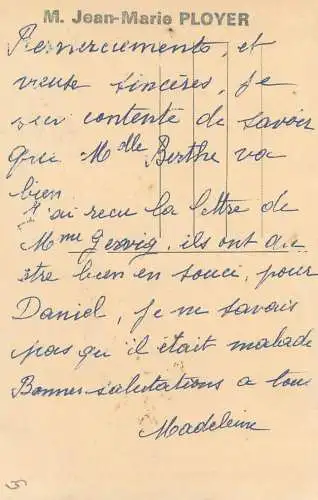 M. Jean-Marie PLOYER
Remerciements, et
vieuse sincères, je
suis contente de savoir
que Mdlle Berthe va
bien
J'ai reçu la lettre de
Mme Gervig, ils ont du
être bien en souci, pour
Daniel, je ne savais
pas qu'il était malade
Bonnes salutations a tous
Madeleine